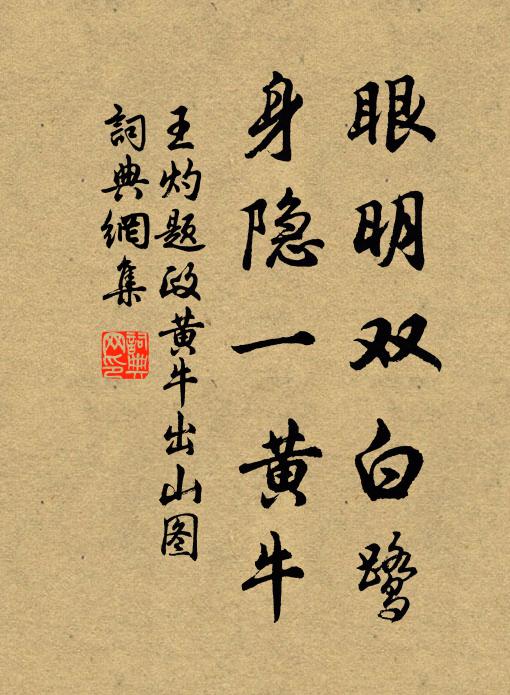 眼明双白鹭
身隐一黄牛
王灼题政黄牛出山图
詞典網集
詞典
网印